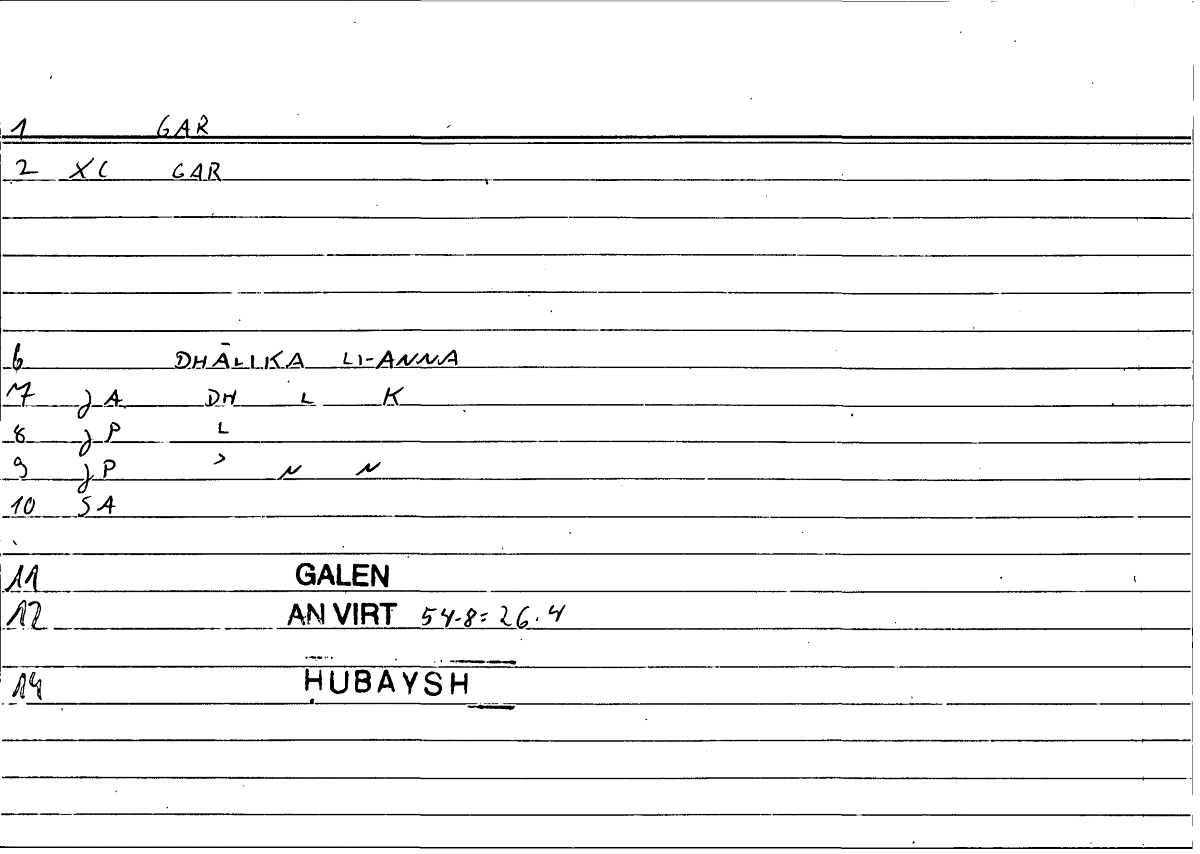 1 GAR
2 XC GAR
6 DHĀLIKA LI-ANNA
7 JA DH L K
8 JP L
9 JP ʾ N N
10 SA
11 GALEN
12 AN VIRT 54.8=26.4
14 HUBAYSH